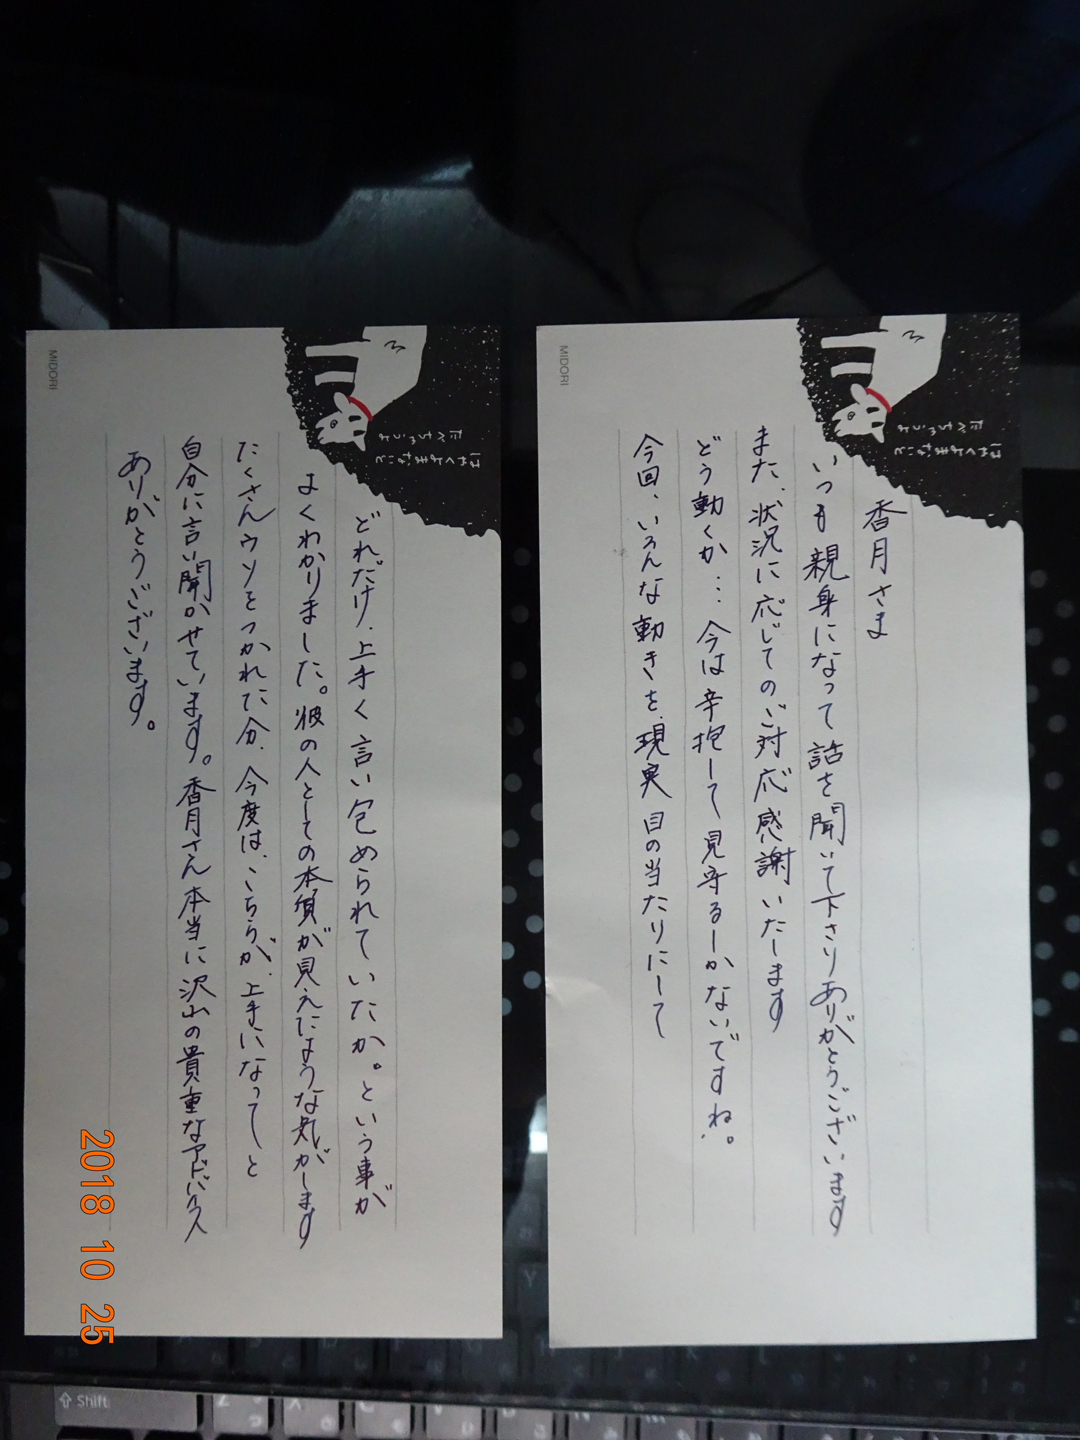 はやくよまないと
たべちゃうよ
香月さま
いつも親身になって話を聞いて下さりありがとうございます
また、状況に応じてのご対応感謝いたします
どう動くか…今は辛抱して見守るしかないですね。
今回、いろんな動きを、現実目の当たりにして
MIDORI
はやくよまないと
たべちゃうよ
どれだけ、上手く言い包められていたか。という事が
よくわかりました。彼の人としての本質が見えたような気がします
たくさんウソをつかれた分、今度は、こちらが、上手になってしと
自分に言い聞かせています。香月さん本当に沢山の貴重なアドバイス
ありがとうございます。
MIDORI
2018 10 25
Shift
Y